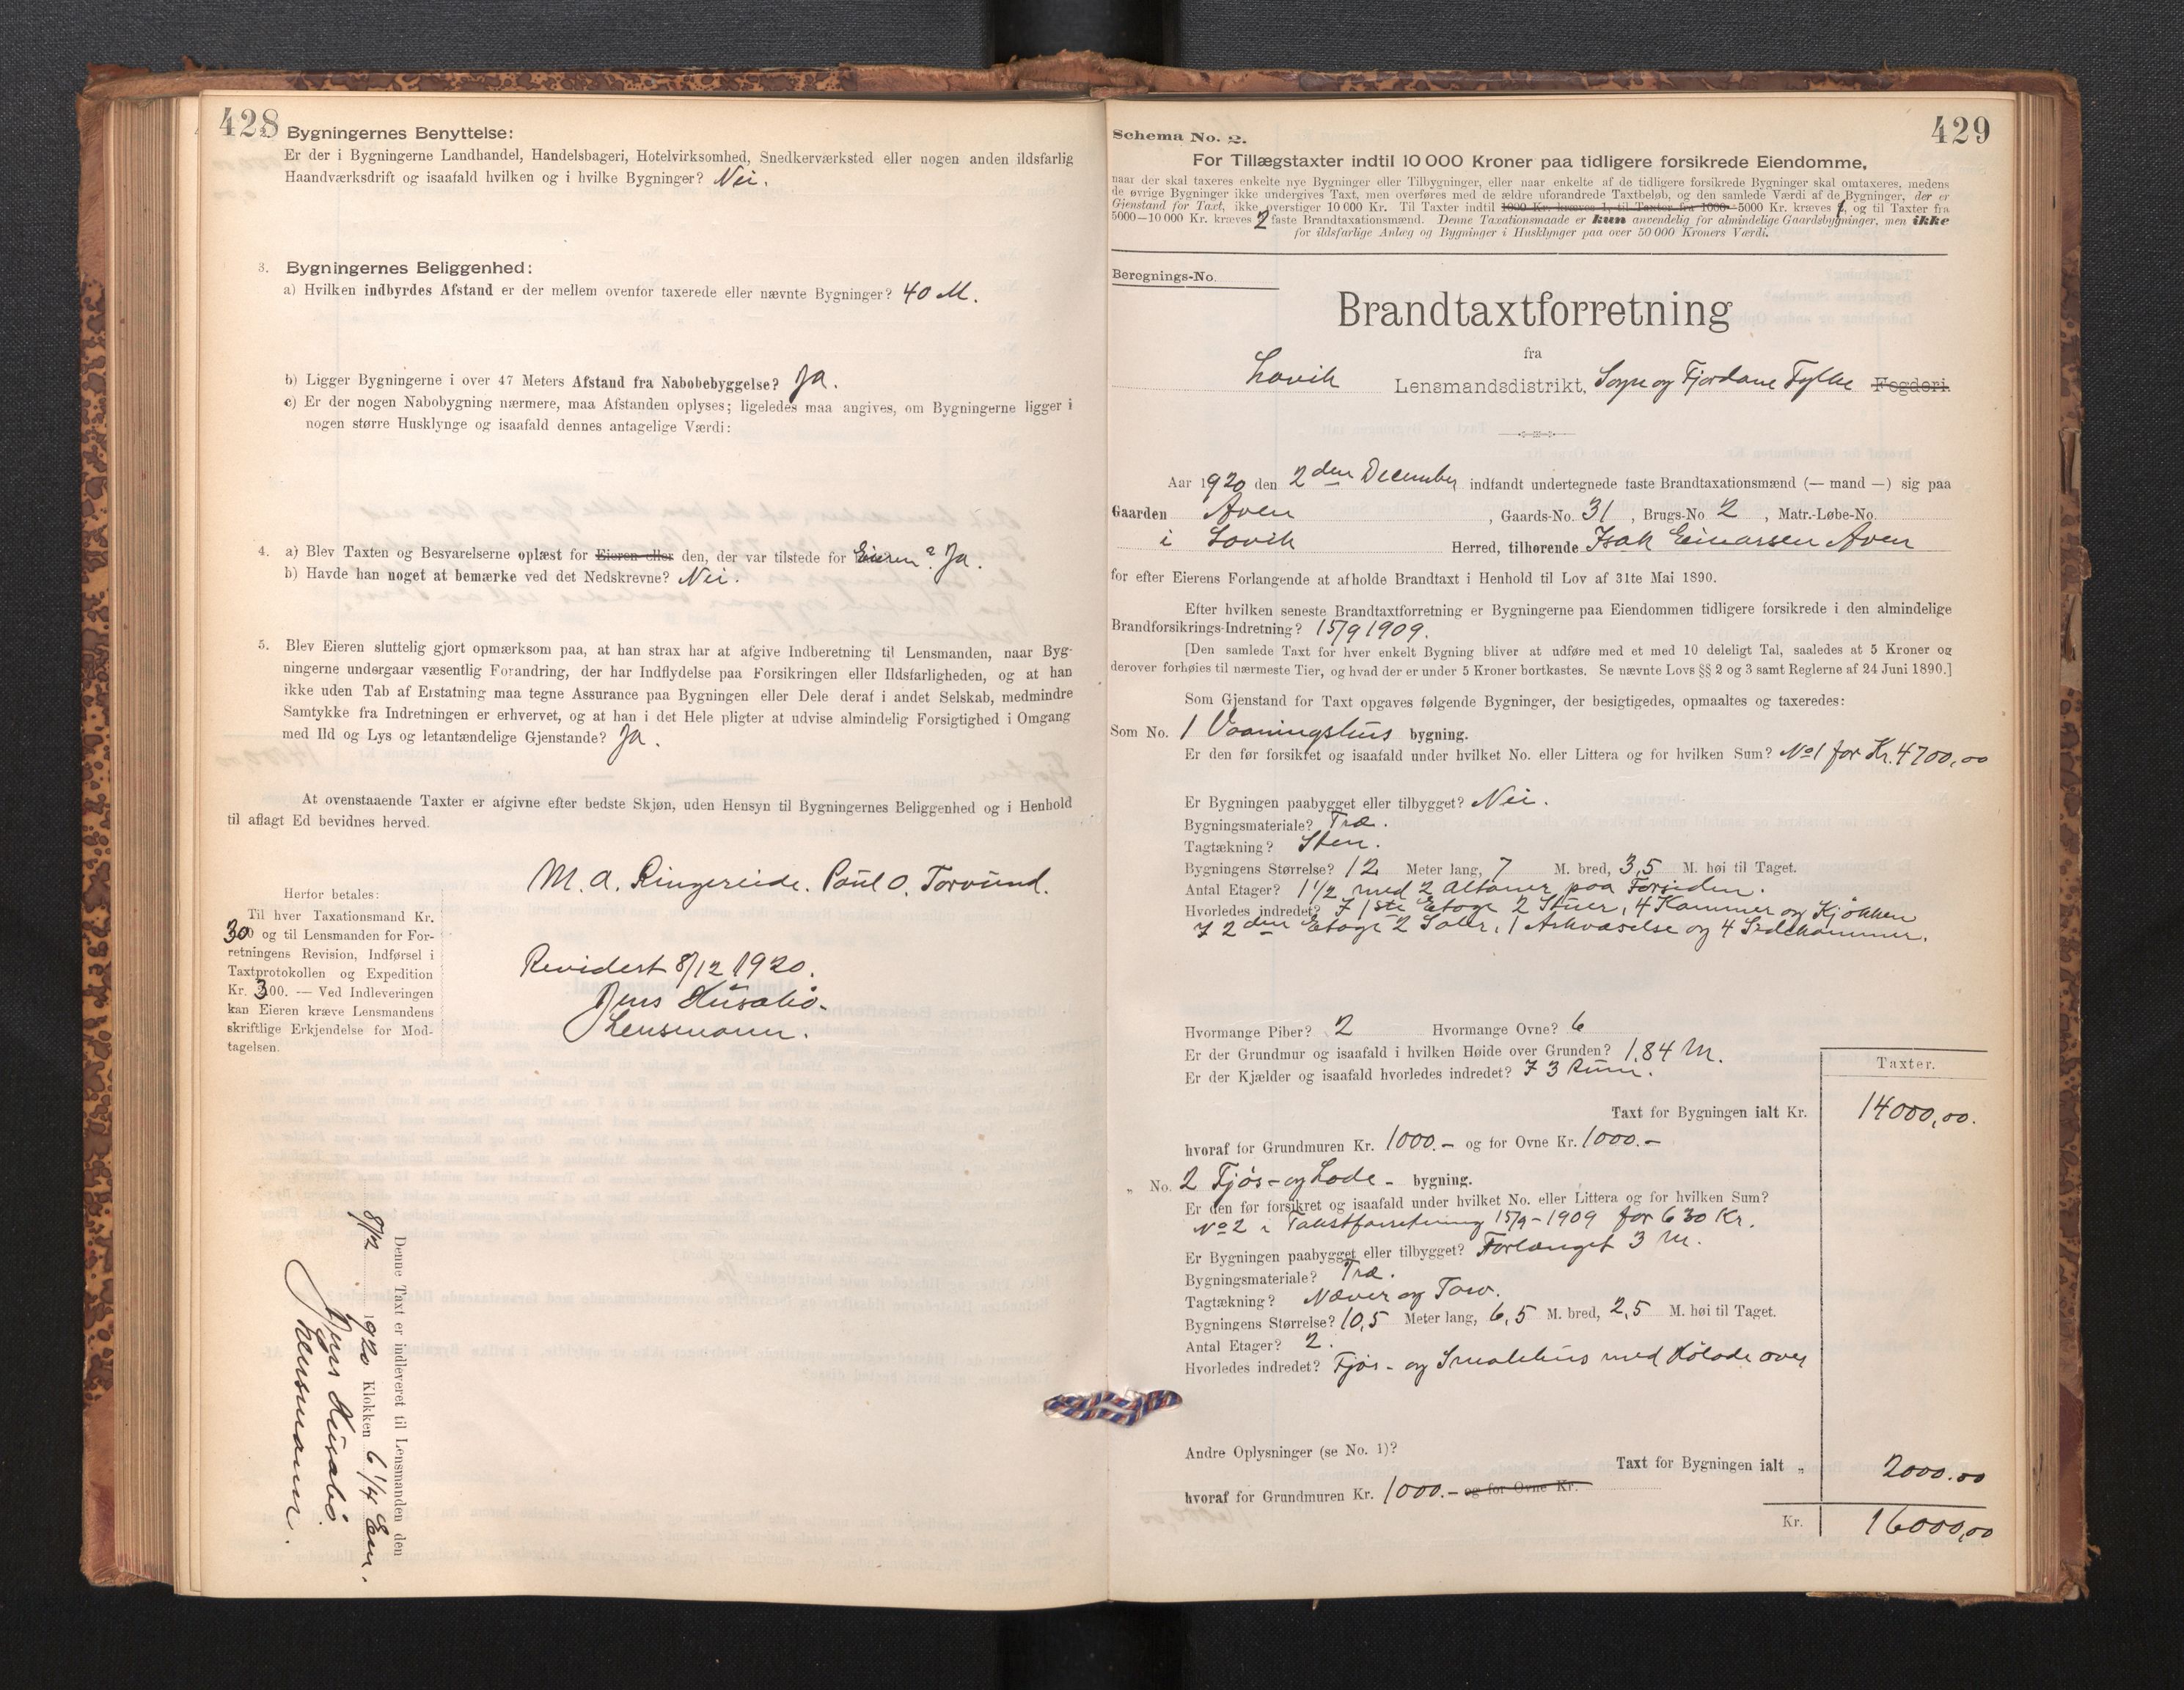 428
Bygningernes Benyttelse:
Er der i Bygningerne Landhandel, Handelsbageri, Hotelvirksomhed, Snedkerværksted eller nogen anden ildsfarlig
Haandværksdrift og isaafald hvilken og i hvilke Bygninger? Nei.
3. Bygningernes Beliggenhed:
a) Hvilken indbyrdes Afstand er der mellem ovenfor taxerede eller nævnte Bygninger? 40 M.
b) Ligger Bygningerne i over 47 Meters Afstand fra Nabobebyggelse? Ja.
c) Er der nogen Nabobygning nærmere, maa Afstanden oplyses; ligeledes maa angives, om Bygningerne ligger i
nogen større Husklynge og isaafald dennes antagelige Værdi:
4. a) Blev Taxten og Besvarelserne oplæst for Eieren eller den, der var tilstede for Eieren? Ja.
b) Havde han noget at bemærke ved det Nedskrevne? Nei.
5. Blev Eieren sluttelig gjort opmærksom paa, at han strax har at afgive Indberetning til Lensmanden, naar Byg-
ningerne undergaar væsentlig Forandring, der har Indflydelse paa Forsikringen eller Ildsfarligheden, og at han
ikke uden Tab af Erstatning maa tegne Assurance paa Bygningen eller Dele deraf i andet Selskab, medmindre
Samtykke fra Indretningen er erhvervet, og at han i det Hele pligter at udvise almindelig Forsigtighed i Omgang
med Ild og Lys og letantændelige Gjenstande? Ja.
At ovenstaaende Taxter er afgivne efter bedste Skjøn, uden Hensyn til Bygningernes Beliggenhed og i Henhold
til aflagt Ed bevidnes herved.
M. A. Ringereide. Paul O. Torvund.
Herfor betales:
Til hver Taxationsmand Kr.
30 og til Lensmanden for For-
retningens Revision, Indførsel i
Taxtprotokollen og Expedition
Kr. 3.00. — Ved Indleveringen
kan Eieren kræve Lensmandens
skriftlige Erkjendelse for Mod-
tagelsen.
Revidert 8/12 1920.
Jens Husabø.
Lensmann.
Denne Taxt er indleveret til Lensmanden den
8/12 1920 Klokken 6 1/4 Em.
Jens Husabø.
Lensmann.
429
Schema No. 2.
For Tillægstaxter indtil 10 000 Kroner paa tidligere forsikrede Eiendomme,
naar der skal taxeres enkelte nye Bygninger eller Tilbygninger, eller naar enkelte af de tidligere forsikrede Bygninger skal omtaxeres, medens
de øvrige Bygninger ikke undergives Taxt, men overføres med de ældre uforandrede Taxtbeløb, og den samlede Værdi af de Bygninger, der er
Gjenstand for Taxt, ikke overstiger 10 000 Kr. Til Taxter indtil 1000 Kr. kræves 1, til Taxter fra 1000-5000 Kr. kræves 1, og til Taxter fra
5000—10 000 Kr. kræves 2 faste Brandtaxationsmænd. Denne Taxationsmaade er kun anvendelig for almindelige Gaardsbygninger, men ikke
for ildsfarlige Anlæg og Bygninger i Husklynger paa over 50 000 Kroners Værdi.
Beregnings-No.
Brandtaxtforretning
fra
Lavik Lensmandsdistrikt, Sogn og Fjordane Fylke Fogderi.
Aar 1920 den 2den December indfandt undertegnede faste Brandtaxationsmænd (— mand —) sig paa
Gaarden Aven, Gaards-No. 31, Brugs-No. 2, Matr.-Løbe-No.
i Lavik Herred, tilhørende Isak Einarsen Aven
for efter Eierens Forlangende at afholde Brandtaxt i Henhold til Lov af 31te Mai 1890.
Efter hvilken seneste Brandtaxtforretning er Bygningerne paa Eiendommen tidligere forsikrede i den almindelige
Brandforsikrings-Indretning? 15/9 1909.
[Den samlede Taxt for hver enkelt Bygning bliver at udføre med et med 10 deleligt Tal, saaledes at 5 Kroner og
derover forhøies til nærmeste Tier, og hvad der er under 5 Kroner bortkastes. Se nævnte Lovs §§ 2 og 3 samt Reglerne af 24 Juni 1890.]
Som Gjenstand for Taxt opgaves følgende Bygninger, der besigtigedes, opmaaltes og taxeredes:
Som No. 1 Vaaningshus bygning.
Er den før forsikret og isaafald under hvilket No. eller Littera og for hvilken Sum? No 1 for Kr. 4700,00
Er Bygningen paabygget eller tilbygget? Nei.
Bygningsmateriale? Træ.
Tagtækning? Sten.
Bygningens Størrelse? 12 Meter lang, 7 M. bred, 3,5 M. høi til Taget.
Antal Etager? 1 1/2 med 2 Altaner paa Forsiden.
Hvorledes indredet? I 1ste Etage 2 Stuer, 4 Kammer og Kjøkken
I 2den Etage 2 Saler, 1 Arkværelse og 4
Hvormange Piber? 2 Hvormange Ovne? 6
Er der Grundmur og isaafald i hvilken Høide over Grunden? 1,84 M.
Er der Kjælder og isaafald hvorledes indredet? I 3 Rum.
Taxter.
Taxt for Bygningen ialt Kr. 14000,00.
hvoraf for Grundmuren Kr. 1000.- og for Ovne Kr. 1000.-
„ No. 2 Fjøs- og Løde- bygning.
Er den før forsikret og isaafald under hvilket No. eller Littera og for hvilken Sum?
No 2 i Takstforretning 15/9-1909 for 630 Kr.
Er Bygningen paabygget eller tilbygget? Forlænget 3 M.
Bygningsmateriale? Træ.
Tagtækning? Næver og Torv.
Bygningens Størrelse? 10,5 Meter lang, 6,5 M. bred, 2,5 M. høi til Taget.
Antal Etager? 2.
Hvorledes indredet? Fjøs- og Smalehus med Høløde over
Andre Oplysninger (se No. 1)?
Taxt for Bygningen ialt „ 2000.00
hvoraf for Grundmuren Kr. 1000.- og for Ovne Kr.
Kr. 16000,00